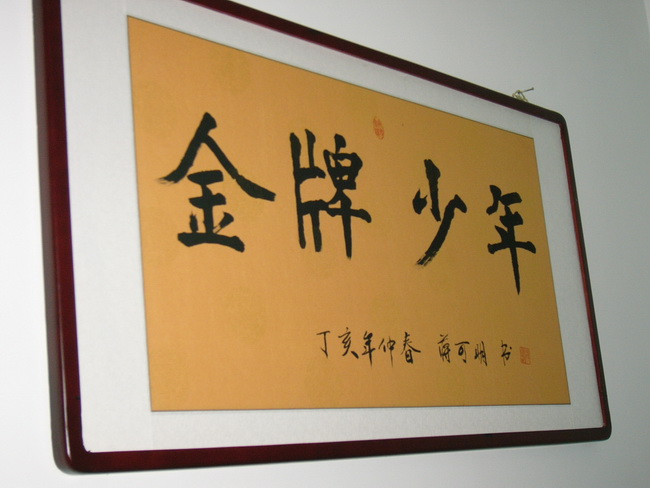 金牌少年
丁亥年仲春 蒋可明书